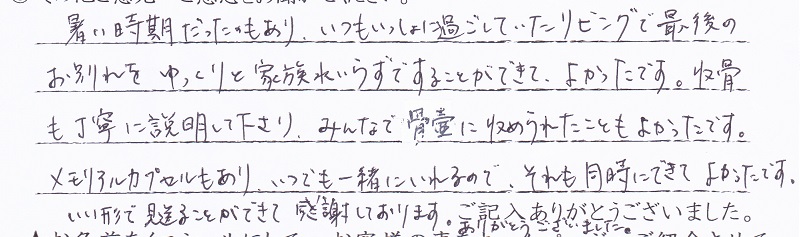 暑い時期だったのもあり、いつもいっしょに過ごしていたリビングで最後の
お別れを ゆっくりと家族水いらずですることができて、よかったです。収骨
も丁寧に説明して下さり、みんなで骨壷に収められたこともよかったです。
メモリアルカプセルもあり、いつでも一緒にいれるので、それも同時にできて よかったです。
いい形で見送ることができて 感謝しております。ご記入ありがとうございました。
ありがとうございました。